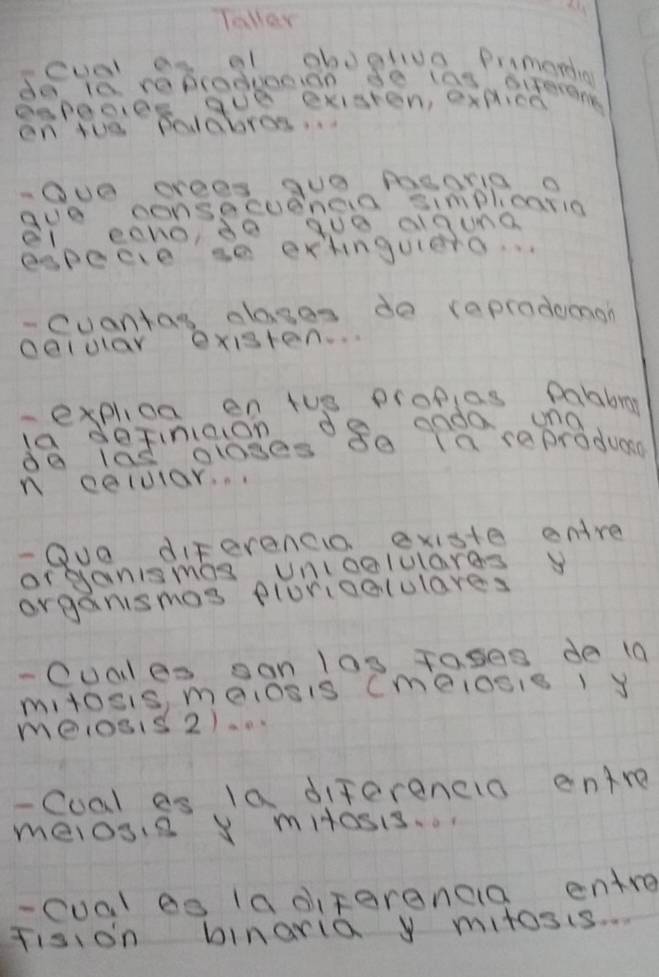 Taller
- Cual es el obgetivo Primordial
de la reproduccion de las diferentes
especies que existen, explica
en tus palabras...
- Que crees que Pasaria o
que consecuencia simplicaria
el echo, de que alguna
especie se extinguiera...
- Cuantas clases de reproduccion
celular existen...
- explica en tus propias Palabras
la definicion de cada una
de las clases de la reproducció
n celular...
- Que diferencia existe entre
organismos unicelulares y
organismos pluricelulares
- Cuales son las fases de la
mitosis, meiosis (meiosis 1 y
meiosis 2)...
- Cual es la diferencia entre
meiosis y mitosis...
- Cual es la diferencia entre
fisión binaria y mitosis...